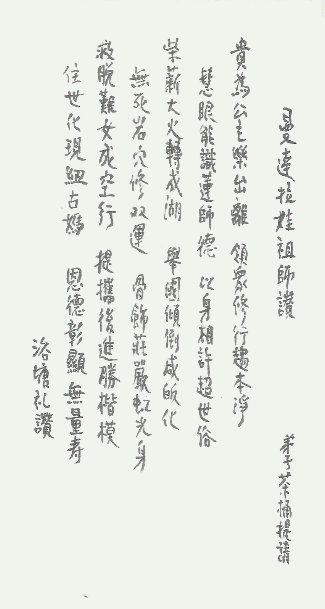 曼達拉娃祖師讚
弟子茶桶提請
貴為公主樂出離 領眾修行趨本淨
慧眼能識蓮師德 以身相許超世俗
柴薪大火轉成湖 舉國傾倒咸皈化
無死岩穴修双運 骨飾莊嚴虹光身
救脫難女成空行 提攜後進勝楷模
住世化現紐古媽 恩德彰顯無量壽
洛塘礼讚